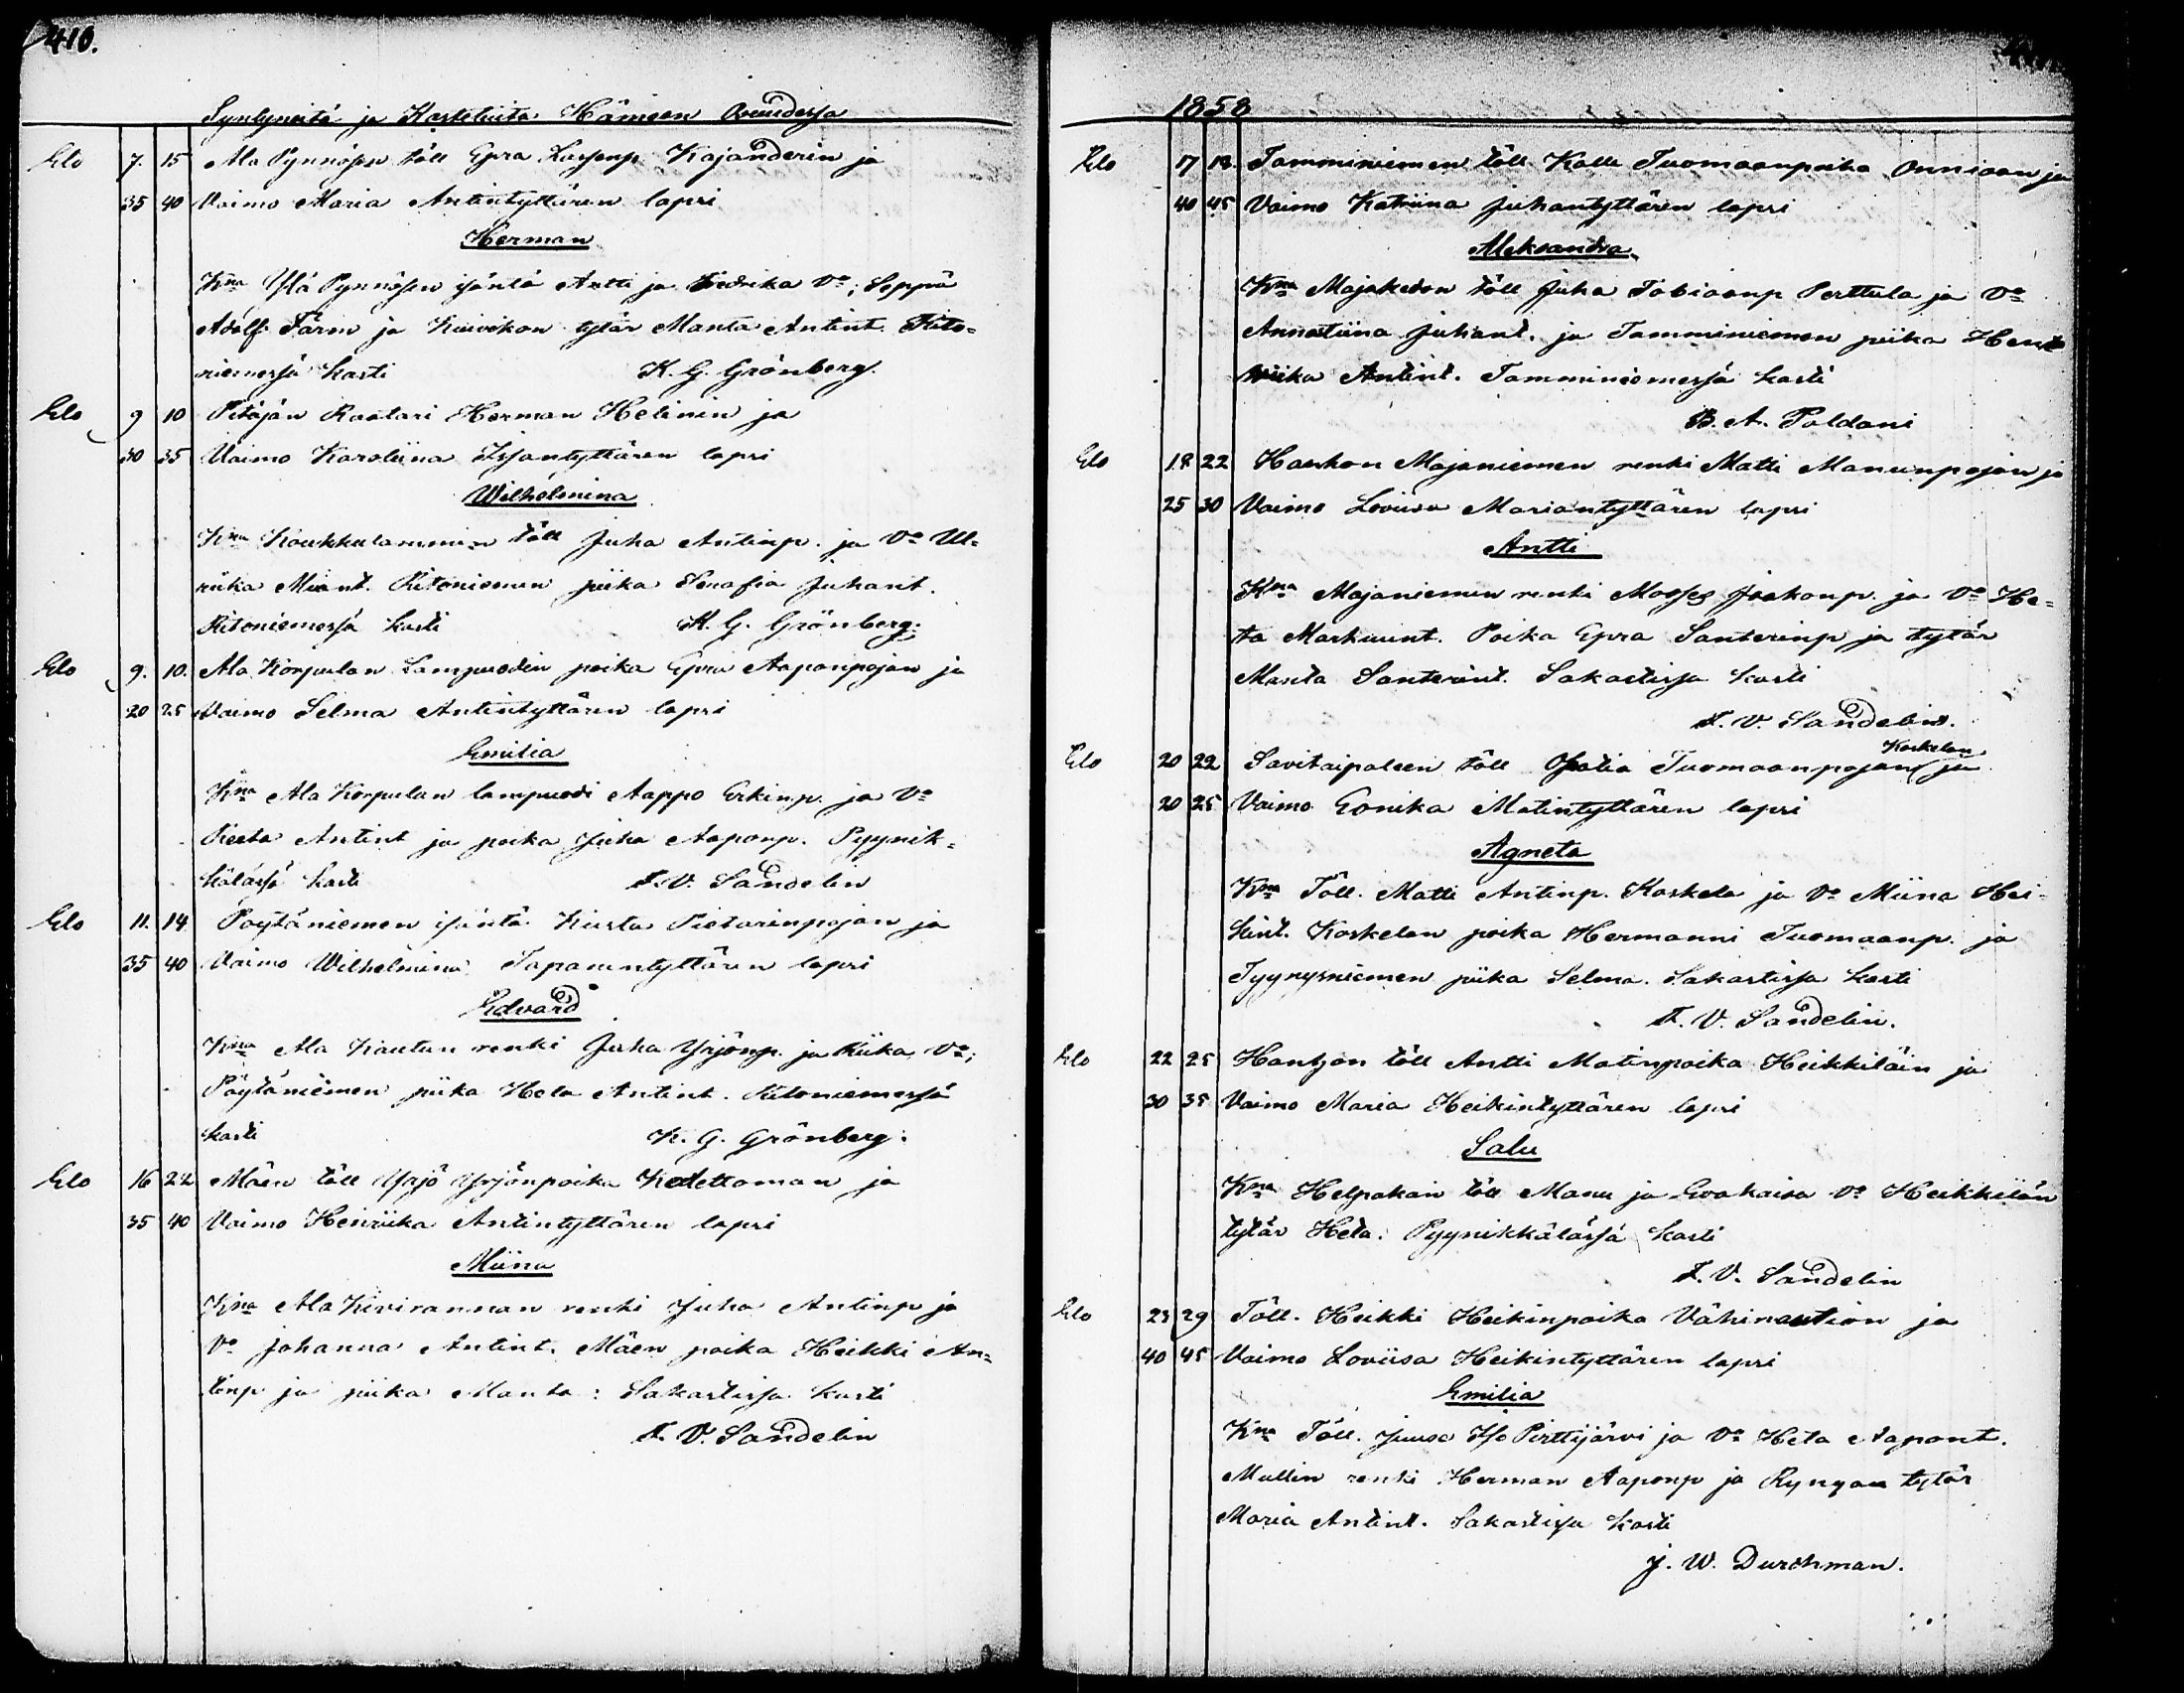 410.
Syntyneitä ja Kastetuita Hämeen
Elo 7. 15 Ala Pynnösen töll Epra Lassenp. Kajanderin ja
35 40 Vaimo Maria Antintyttären lapsi
Herman
Kna Ylä Pynnösen isäntä Antti ja Fredrika Vo; Seppä
Adolf Färm ja tytär Manta Antint. Rito=
niemessä kasti K. G. Grönberg.
Elo 9 10 Pitäjän Räätari Herman Helinin ja
30 35 Vaimo Karoliina tyttären lapsi
Wilhelmina
Kna Koukkulammin töll Juha Antinp. ja Vo Ul=
riika Ritoniemen piika Serafia Juhant.
Ritoniemessä kasti K. G. Grönberg.
Elo 9. 10. Ala Korpulan Lampuodin poika Epra Aaponpojan ja
20 25 Vaimo Selma Antintyttären lapsi
Emilia
Kna Ala Korpulan lampuodi Aappo Erkinp. ja Vo
Antint ja poika Juha Aaponp. Pyynik=
kälässä kasti F. V. Sandelin
Elo 11. 14 Pöytäniemen isäntä Kusta Pietarinpojan ja
35 40 Vaimo Wilhelmina Tapanintyttären lapsi
Edvard
Kna Ala Kautun renki Juha Yrjönp. ja Riika Vo;
Pöytäniemen piika Heta Antint. Ritoniemessä
kasti K. G. Grönberg.
Elo 16 22 Mäen töll Yrjö Yrjönpoika Kedettoman ja
35 40 Vaimo Henriika Antintyttären lapsi
Miina
Kna Ala Kivirannan renki Juha Antinp ja
Vo Johanna Antint. Mäen poika Heikki An=
tinp ja piika Manta: Sakastissa kasti
F. V. Sandelin
1858
Elo 17 18. Tamminiemen töll Kalle Tuomaanpoika Onniaan ja
40 45 Vaimo Katriina Juhantyttären lapsi
Aleksandra
Kna Majakedon töll Juha Tobiaanp Perttula ja Vo
Annastiina Juhant. ja Tamminiemen piika Hen
riika Antint. Tamminiemessä kasti
B. A. Paldani
Elo 18 22 Haukon Majaniemen renki Matti Manunpojan ja
25 30 Vaimo Loviisa Mariantyttären lapsi
Antti
Kna Majaniemen renki Mosses Jaakonp. ja Vo He=
ta Markuunt. Poika Epra Santerinp ja tytär
Manta Santerint. Sakastissa kasti
F. V. Sandelin.
Elo 20 22 Savitaipaleen töll Tuomaanpojan Koskelan ja
20 25 Vaimo Eonika Matintyttären lapsi
Agneta
Kna Töll. Matti Antinp. Koskela ja Vo Miina Hei=
kint. Koskelan poika Hermanni Tuomaanp. ja
Tyyrysniemen piika Selma. Sakastissa kasti
F. V. Sandelin.
Elo 22 25 Hantjon töll Antti Matinpoika Heikkiläin ja
30 35 Vaimo Maria Heikintyttären lapsi
Salu
Kna Helpakan töll Manu ja Evakaisa Vo Heikkilän
tytär Heta. Pyynikkälässä kasti
F. V. Sandelin
Elo 23 29 Töll. Heikki Heikinpoika Vähiraution ja
40 45 Vaimo Loviisa Heikintyttären lapsi
Emilia
Kna Töll. Juuse Iso Perttijärvi ja Vo Heta Aapont.
Mullin renki Herman Aaponp ja tytär
Maria Antint. Sakastissa kasti
J. W. Durchman.